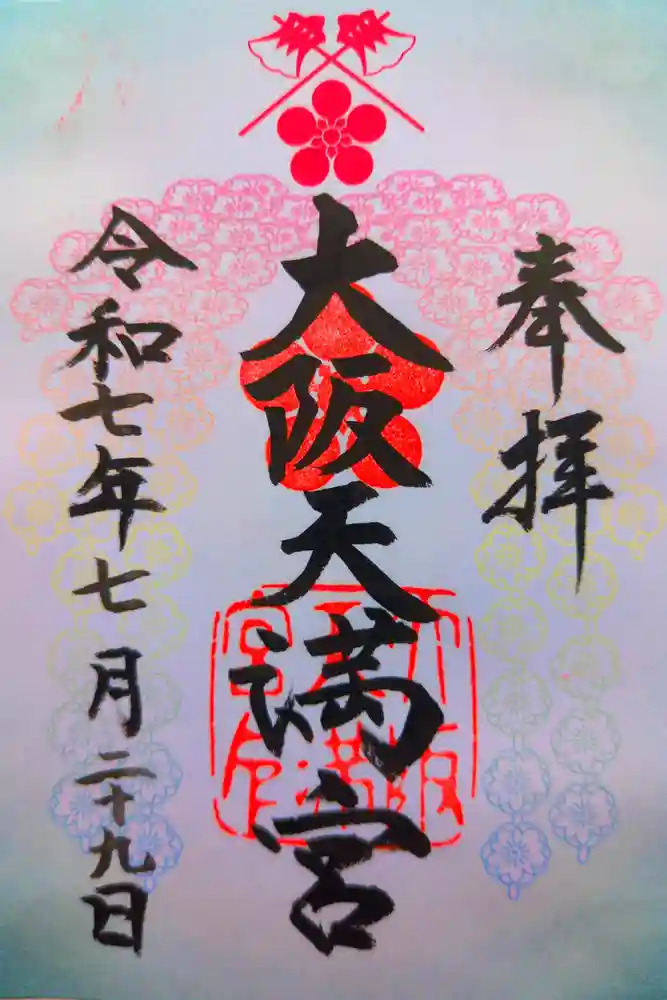 奉拝
大阪天満宮
令和七年七月二十九日